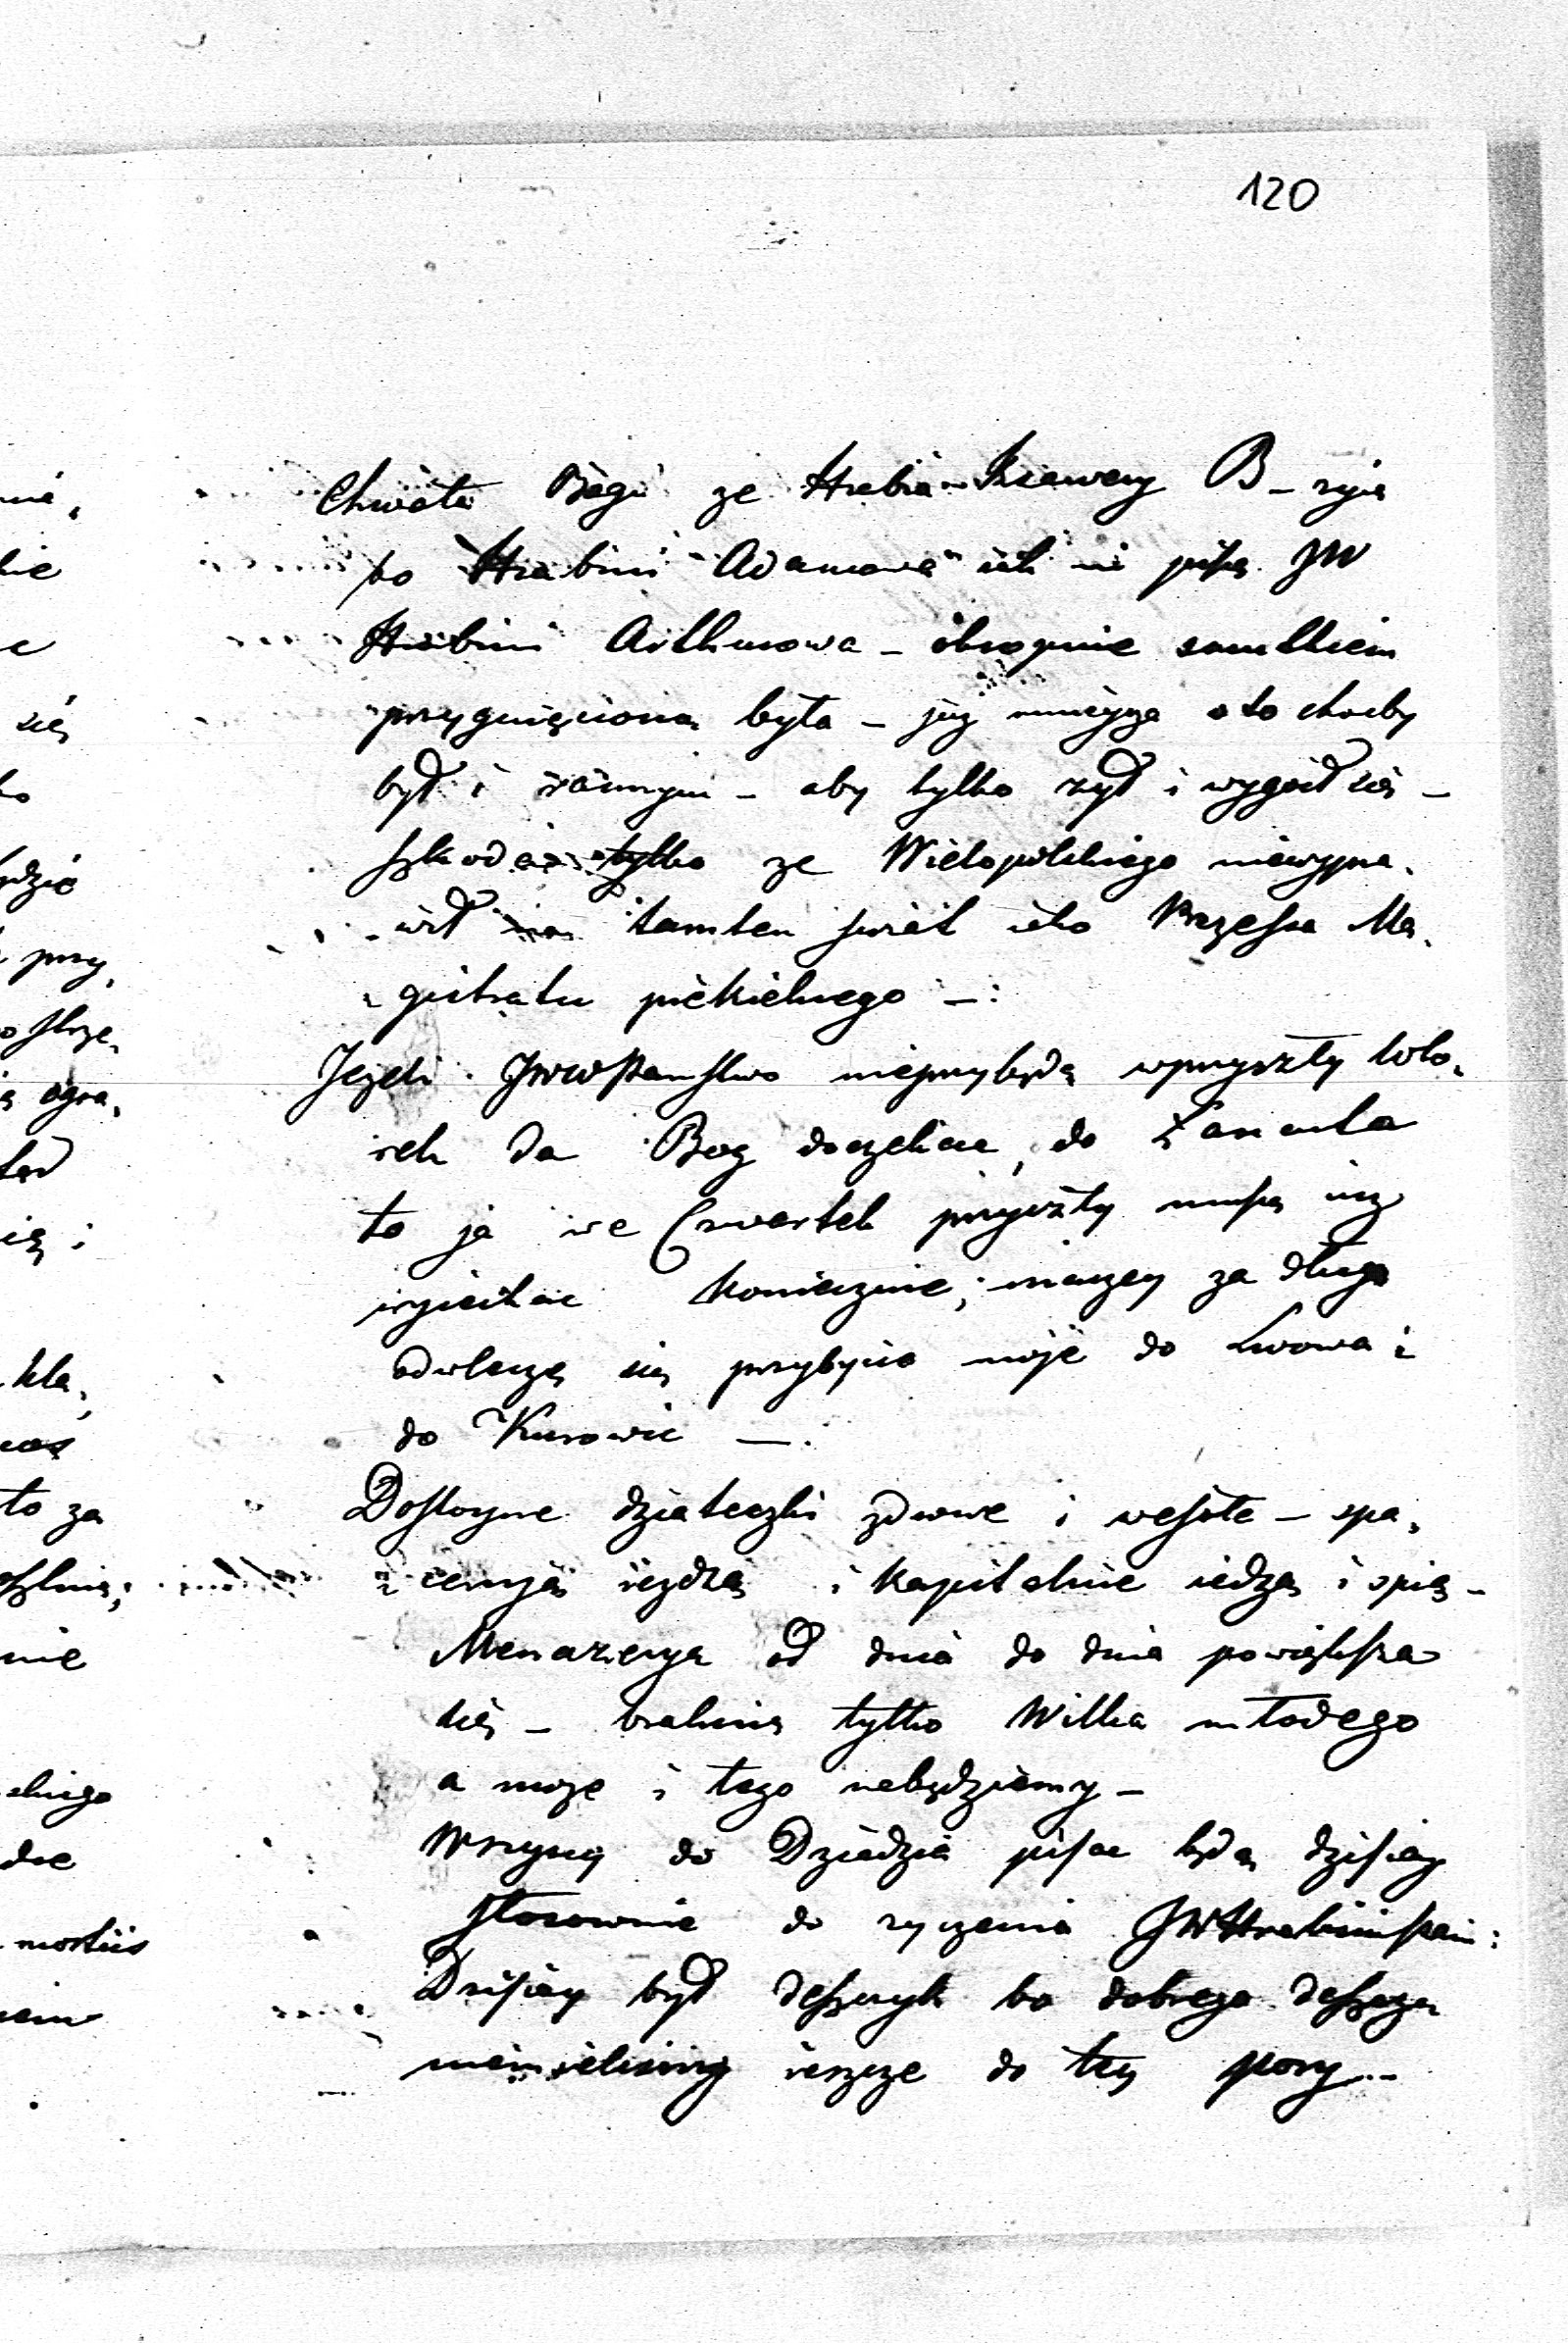 120
Chwała Bogu ze Hrabia Xsawery B – zyie
bo Hrabini Adamowa iak mi pisą JW
Hrabini Arthurowa – okropnie smutkiem
przygnięciona była – już mnieysza o to choćby
był i rannym – aby tylko zył i wygoił się –
szkoda tylko ze Wielopolskiego niewypra-
wił na tamten swiat iako Prezesa Ma-
gistratu piekielnego –:
Jeżeli JWWPanstwo nieprzybędą wprzyszły Wto-
rek da Bog doczekac, do Łancuta
to ja we Czwartek przyszły muszę iuz
wyiechac koniecznie; inaczey za długo
odwlecze się przybycie moje do Lwowa i
do Kurowic –.
Dostoyne dziateczki zdrowe i wesołe – spa-
cerują ieżdżą i kapitalnie iedzą i spią –
Menazerya od dnia do dnia powiększa
się – brakuie tylko Wilka młodego
a moze i tego nabędziemy –
Wszyscy do Dziadzia pisac będą dzisiay
stosownie do zyczenia JWHrabiniPani:
Dzisiay był deszczyk bo dobrego deszczu
niemieliśmy ieszcze do tey pory –
się
przy-
ogra-
kla-
to za
nie
mortuis